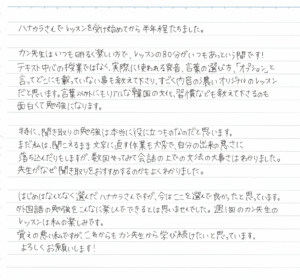 ハナカラさんでレッスンを受け始めてから半年程たちました。
カン先生はいつも明るく楽しい方で、レッスンの80分がいつもあっという間です!
テキスト中心の授業ではなく、実際に使われる発音、言葉の選び方、「オプション」と
言ってどこにも載っていない事も教えて下さり、すごく内容の濃いオリジナルのレッスン
だと思います。言葉以外にもリアルな韓国の文化、習慣なども教えて下さるのも
面白くて勉強になります。
特に、聞き取りの勉強は本当に役に立つものなのだと思います。
まだ私は聞こえるまま文字に直す作業も大変で、自分の出来の悪さに
落ち込んだりもしますが、数回やってみて会話の上での文法の大事さはわかりました。
先生がなぜ聞き取りをおすすめするのかもよくわかりました。
はじめはなんとなく選んだハナカラさんですが、今はここを選んで良かったと思っています。
外国語の勉強をこんなに楽しんでできるとは思いませんでした。週1回のカン先生の
レッスンは私の楽しみです。
覚えの悪い私ですが、これからもカン先生から学び続けたいと思っています。
よろしくお願いします!